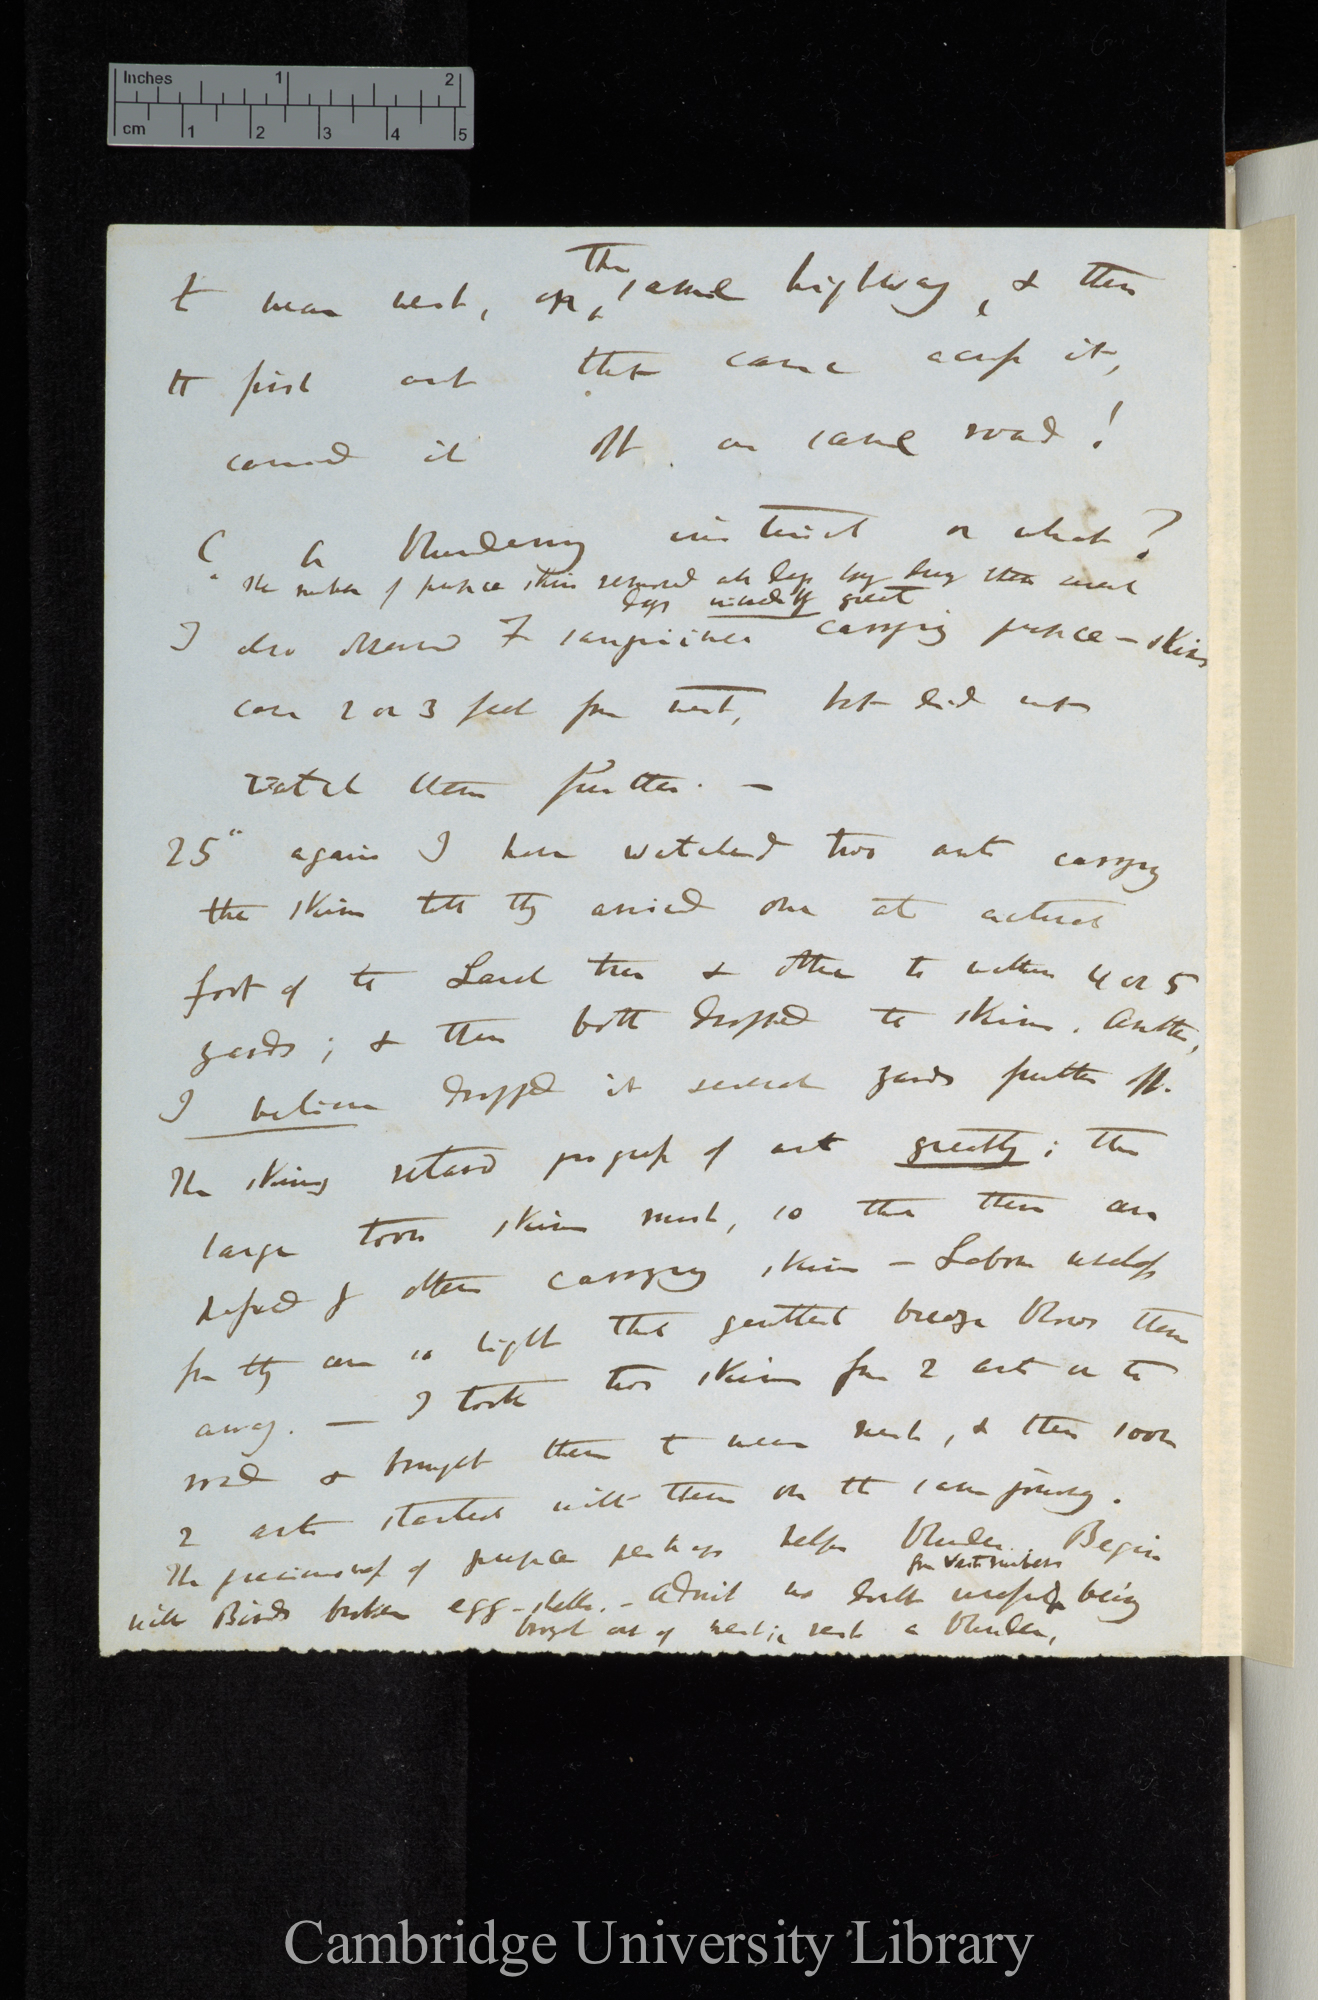 Inches 1 2
cm 1 2 3 4 5
The
to near nest, on same highway, & then
the first ant that came across it,
carried it off on same road!
(? A blundering instinct or what?
The number of pupæ skins removed all day long day after
days great
I also observed F. sanguinea carrying pupæ-skins
some 2 or 3 feet from nest, but did not
watch them further. —
25th again I have watched two ants carrying
the skins till they arrived one at actual
foot of the tree & other to within 4 or 5
yards; & then both dropped the skins. Another,
I believe dropped it several yards further off.
The skins retard progress of ant greatly; the
large torn skins most, so that there are
of others carrying skins — Labour useless
for they are so light that gentlest breeze blows them
away. — I took two skins from 2 ants on the
road & brought them to near nest, & then soon
2 ants started with them on the same journey.
The preciousness of pupæ perhaps helps blunder. Begin
from vast numbers
with Birds broken egg-shells. — Admit no doubt useful being
brought out of nest; in nest a blunder.
Cambridge University Library